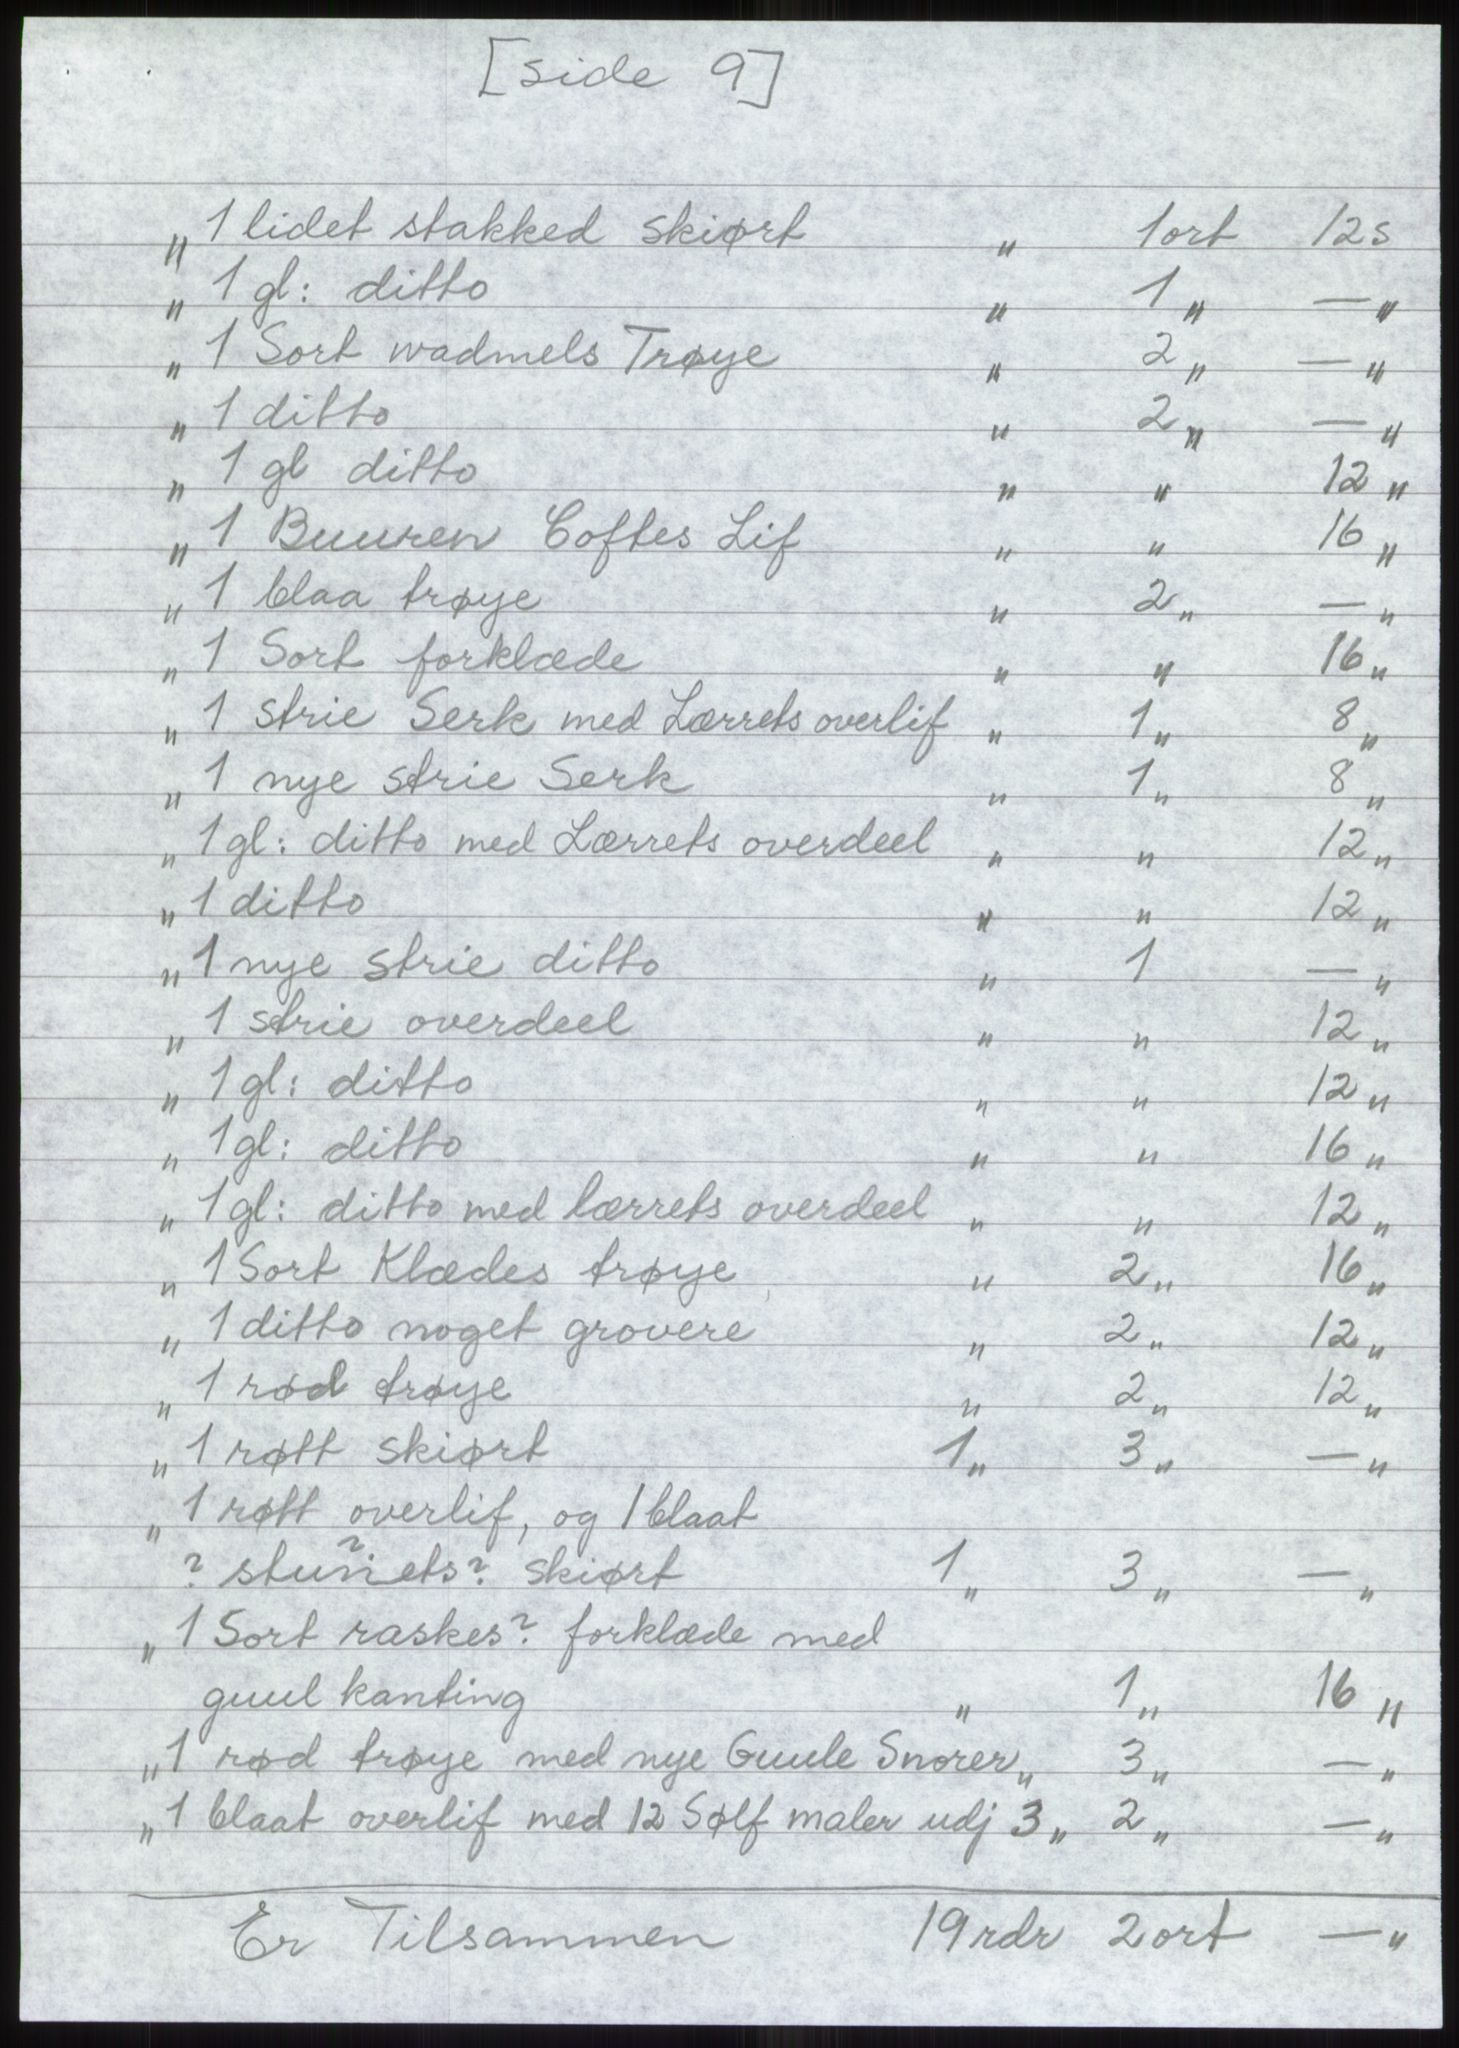 [side 9]
„ 1 lidet stakked skiørt „ 1 ort 12 s
„ 1 gl: ditto „ 1 „ — „
„ 1 Sort wadmels Trøye „ 2 „ — „
„ 1 ditto „ 2 „ — „
„ 1 gl ditto „ „ 12 „
„ 1 Buuren Coftes Lif „ „ 16 „
„ 1 blaa trøye „ 2 „ — „
„ 1 Sort forklæde „ „ 16 „
„ 1 strie Serk med Lærrets overlif „ 1 „ 8 „
„ 1 nye strie Serk „ 1 „ 8 „
„ 1 gl: ditto med Lærrets overdeel „ „ 12 „
„ 1 ditto „ „ 12 „
„ 1 nye strie ditto „ 1 — „
„ 1 strie overdeel „ „ 12 „
„ 1 gl: ditto „ „ 12 „
„ 1 gl: ditto „ „ 16 „
„ 1 gl: ditto med lærrets overdeel „ „ 12 „
„ 1 Sort Klædes trøye „ 2 „ 16 „
„ 1 ditto noget grovere „ 2 „ 12 „
„ 1 rød trøye „ 2 „ 12 „
„ 1 røtt skiørt 1 „ 3 „ — „
„ 1 røtt overlif, og 1 blaat
? stuñets? skiørt 1 „ 3 „ — „
„ 1 Sort raskes? forklæde med
guul kanting „ 1 „ 16 „
„ 1 rød trøye med nye Guule Snorer „ 3 „ — „
„ 1 blaat overlif med 12 Sølf maler udj 3 „ 2 „ — „
Er Tilsammen 19 rdr 2 ort — „